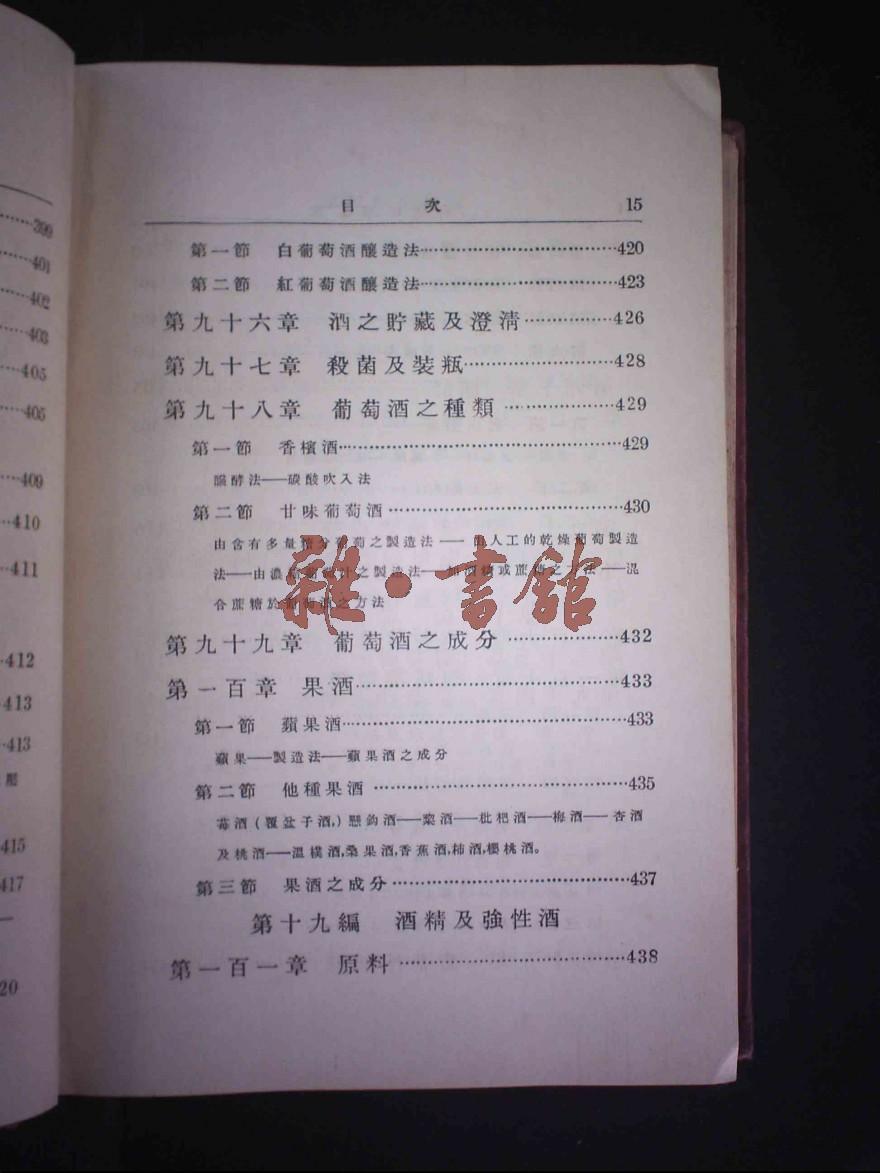 399
401
402
403
405
405
409
410
411
412
413
413
415
417
20
目次 15
第一節 白葡萄酒釀造法……420
第二節 紅葡萄酒釀造法……423
第九十六章 酒之貯藏及澄清……426
第九十七章 殺菌及裝瓶……428
第九十八章 葡萄酒之種類……429
第一節 香檳酒……429
醱酵法——碳酸吹入法
第二節 甘味葡萄酒……430
由含有多量糖分葡萄之製造法——由人工的乾燥葡萄製造
法——由濃葡萄汁之製造法——加酒精或蔗糖之方法——混
合蔗糖於葡萄酒之方法
雜·書館
第九十九章 葡萄酒之成分……432
第一百章 果酒……433
第一節 蘋果酒……433
蘋果——製造法——蘋果酒之成分
第二節 他種果酒……435
莓酒(覆盆子酒,)懸鈎酒——棃酒——枇杷酒——梅酒——杏酒
及桃酒——溫樸酒,桑果酒,香蕉酒,柿酒,櫻桃酒。
第三節 果酒之成分……437
第十九編 酒精及強性酒
第一百一章 原料……438